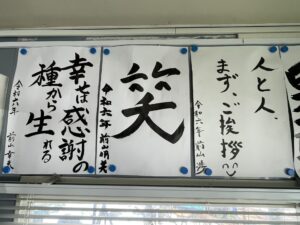 人と人、
まず、ご挨拶
令和六年 前山
笑
令和六年 前山明夫
幸せは感謝の
種から生れる
令和六年 前山